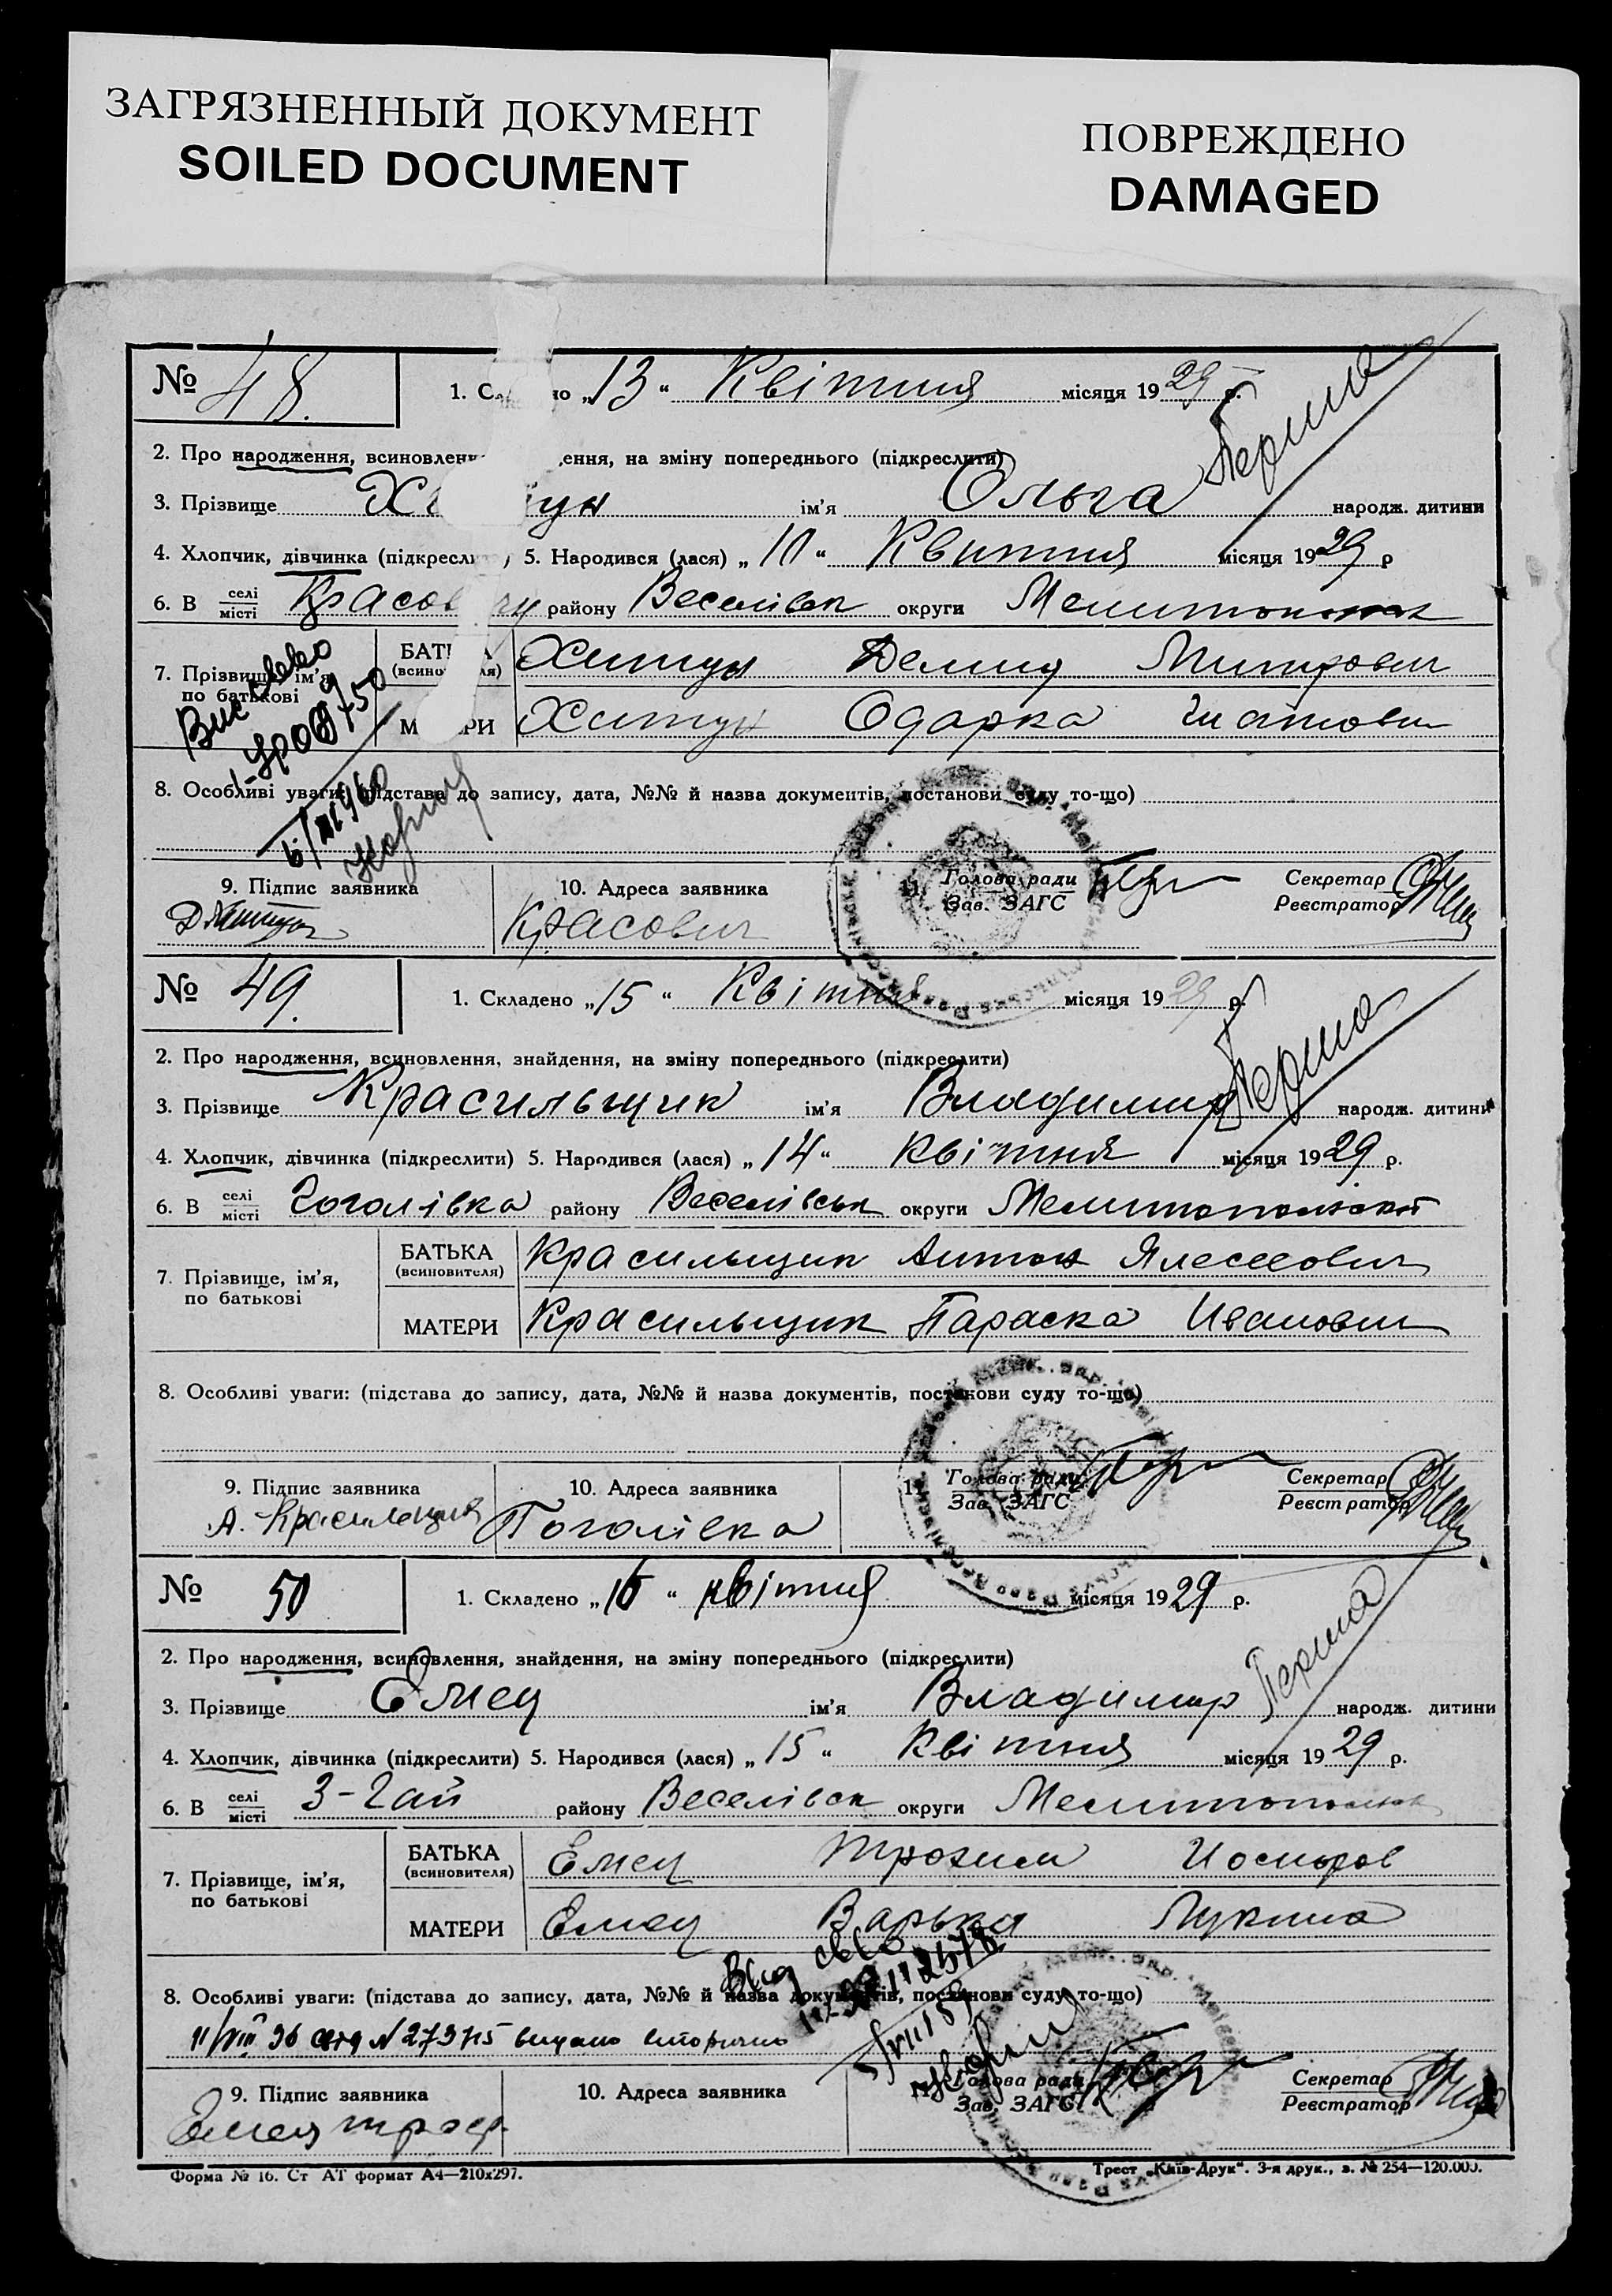 ЗАГРЯЗНЕННЫЙ ДОКУМЕНТ
SOILED DOCUMENT
ПОВРЕЖДЕНО
DAMAGED
№ 48. 1. Ск но „13“ Квітня місяця 1929 р.
Перша
2. Про народження, всиновленн ення, на зміну попереднього (підкреслити)
3. Прізвище Х ун ім'я Ольга народж. дитини
4. Хлопчик, дівчинка (підкресли ) 5. Народився (лася) „ “ Квитня місяця 1929 р
6. В селі місті району Веселівськ округи
7. Прізвище, ім'я, по батькові
БАТЬ А (всино ля) Хитун Демид Митрович
М РИ Хитун Одарка
8. Особливі уваги: (підстава до запису, дата, №№ й назва документів, постанови суду то-що)
9. Підпис заявника
10. Адреса заявника
11. Голова ради Зав. ЗАГС
Секретар Реєстратор
№ 49. 1. Складено „15“ Квітня місяця 1929 р.
Перша
2. Про народження, всиновлення, знайдення, на зміну попереднього (підкреслити)
3. Прізвище Красильщик ім'я Владимир народж. дитини
4. Хлопчик, дівчинка (підкреслити) 5. Народився (лася) „14“ квітня місяця 1929 р.
6. В селі місті Гоголівка району Веселівськ округи Мелитопольської
7. Прізвище, ім'я, по батькові
БАТЬКА (всиновителя) Красильщик Антон
МАТЕРИ Красильщик Параска Ивановн
8. Особливі уваги: (підстава до запису, дата, №№ й назва документів, постанови суду то-що)
9. Підпис заявника А. Красильщик
10. Адреса заявника Гоголівка
11. Голова ради Зав. ЗАГС
Секретар Реєстратор
№ 50 1. Складено „ “ квітня місяця 1929 р.
Перша
2. Про народження, всиновлення, знайдення, на зміну попереднього (підкреслити)
3. Прізвище Емец ім'я Владимир народж. дитини
4. Хлопчик, дівчинка (підкреслити) 5. Народився (лася) „15“ Квітня місяця 1929 р.
6. В селі місті 3-Гай району Веселівск округи
7. Прізвище, ім'я, по батькові
БАТЬКА (всиновителя) Емец Трохим
МАТЕРИ Емец Варька Лукина
8. Особливі уваги: (підстава до запису, дата, №№ й назва документів, постанови суду то-що)
9. Підпис заявника
10. Адреса заявника
11. Голова ради Зав. ЗАГС
Секретар Реєстратор
Форма № 16. Ст АТ формат А4—210x297.
Трест „Київ-Друк“. 3-я друк., з. № 254—120.000.